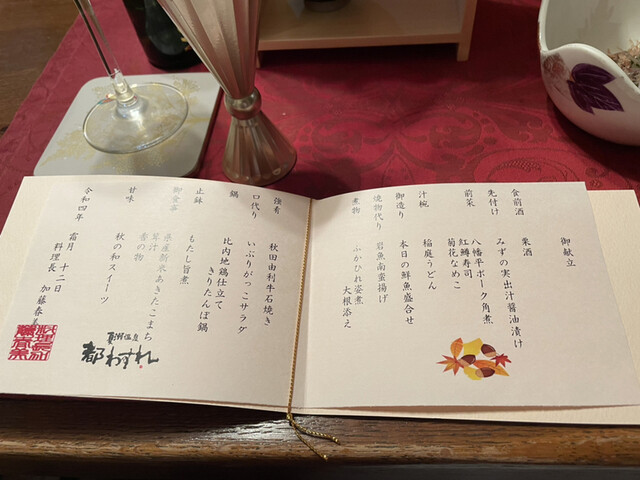 御献立
食前酒 果酒
先付け みずの実出汁醤油漬け
前菜 八幡平ポーク角煮
紅鱒寿司
菊花なめこ
汁椀 稲庭うどん
御造り 本日の鮮魚盛合せ
焼物代り 岩魚南蛮揚げ
煮物 ふかひれ姿煮
大根添え
強肴 秋田由利牛石焼き
口代り いぶりがっこサラダ
鍋 比内地鶏仕立て
きりたんぽ鍋
止鉢 もたし旨煮
御食事 県産新米あきたこまち
茸汁
香の物
甘味 秋の和スイーツ
令和四年 霜月 十二日
料理長 加藤春
夏瀬温泉
都わすれ